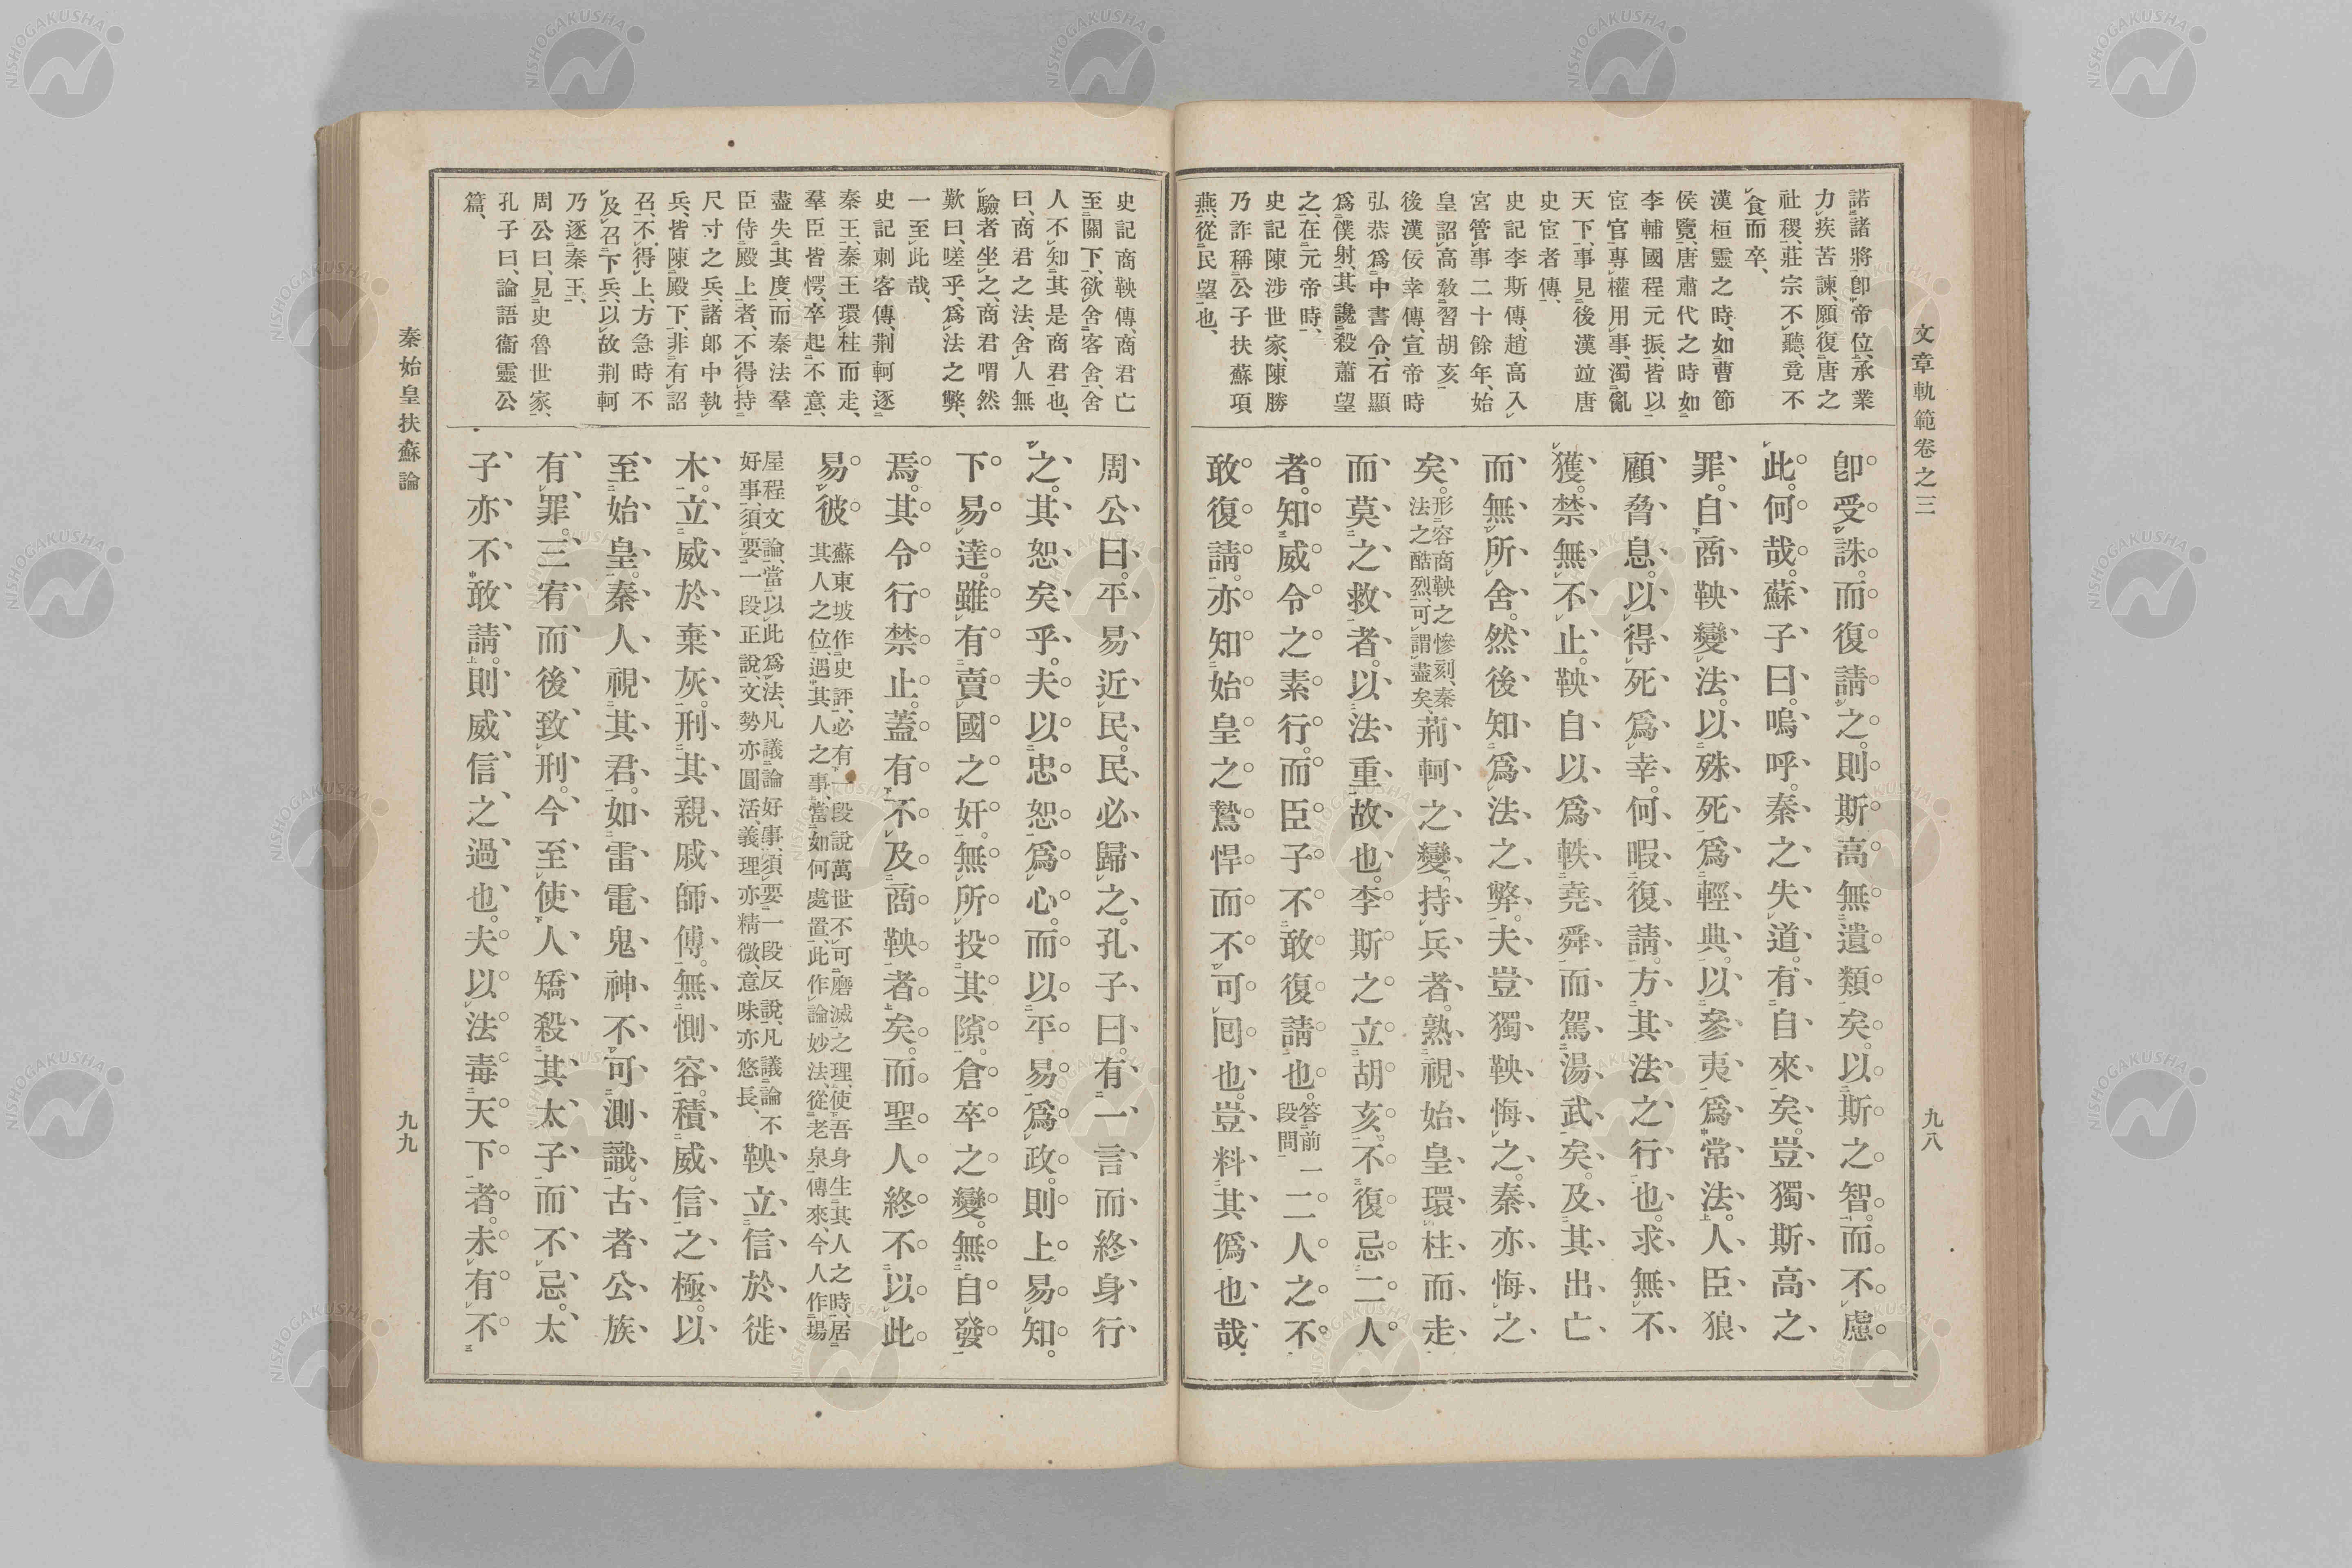 文章軌範卷之三
九八
諾諸將卽帝位、承業
力疾苦諫、願復唐之
社稷、莊宗不聽、竟不
食而卒、
漢桓靈之時、如曹節
侯覽、唐肅代之時如
李輔國程元振、皆以
宦官專權用事、濁亂
天下、事見後漢竝唐
史宦者傳、
史記李斯傳、趙高入
宮管事二十餘年、始
皇詔高敎習胡亥
後漢佞幸傳、宣帝時
弘恭爲中書令、石顯
爲僕射、其讒殺蕭望
之、在元帝時、
史記陳涉世家、陳勝
乃詐稱公子扶蘇項
燕、從民望也、
卽受誅。而復請之。則斯高無遺類矣。以斯之智。而不慮
此。何哉。蘇子曰。嗚呼。秦之失道。有自來矣。豈獨斯高之
罪。自商鞅變法。以殊死爲輕典。以參夷爲常法。人臣狼
顧脅息。以得死爲幸。何暇復請。方其法之行也。求無不
獲。禁無不止。鞅自以爲軼堯舜而駕湯武矣。及其出亡
而無所舍。然後知爲法之弊。夫豈獨鞅悔之。秦亦悔之
矣。形容商鞅之慘刻、秦法之酷烈、可謂盡矣、荊軻之變。持兵者。熟視始皇環柱而走
而莫之救者。以法重故也。李斯之立胡亥。不復忌二人
者。知威令之素行。而臣子不敢復請也。答前一段問二人之不
敢復請。亦知始皇之鷙悍而不可囘也。豈料其僞也哉。
史記商鞅傳、商君亡
至關下、欲舍客舍、舍
人不知其是商君也、
曰、商君之法、舍人無
驗者坐之、商君喟然
歎曰、嗟乎、爲法之弊、
一至此哉、
史記刺客傳、荆軻逐
秦王、秦王環柱而走、
羣臣皆愕、卒起不意、
盡失其度、而秦法羣
臣侍殿上者、不得持
尺寸之兵、諸郎中執
兵、皆陳殿下、非有詔
召、不得上、方急時不
及召下兵、以故荆軻
乃逐秦王、
周公曰、見史魯世家、
孔子曰、論語衞靈公
篇、
周公曰。平易近民。民必歸之。孔子曰。有一言而終身行
之。其恕矣乎。夫以忠恕爲心。而以平易爲政。則上易知。
下易達。雖有賣國之奸。無所投其隙。倉卒之變。無自發
焉。其令行禁止。蓋有不及商鞅者矣。而聖人終不以此
易彼蘇東坡作史評、必有一段說萬世不可磨滅之理、使吾身生其人之時、居其人之位、遇其人之事、當如何處置、此作論妙法、從老泉傳來、今人作場
屋程文論、當以此爲法、凡議論好事、須要一段反說、凡議論不好事、須要一段正說、文勢亦圓活、義理亦精微、意味亦悠長、鞅立信於徙
木。立威於棄灰。刑其親戚師傅。無惻容。積威信之極。以
至始皇。秦人視其君。如雷電鬼神不可測識。古者公族
有罪。三宥而後致刑。今至使人矯殺其太子而不忌。太
子亦不敢請。則威信之過也。夫以法毒天下者。未有不
秦始皇扶蘇論
九九